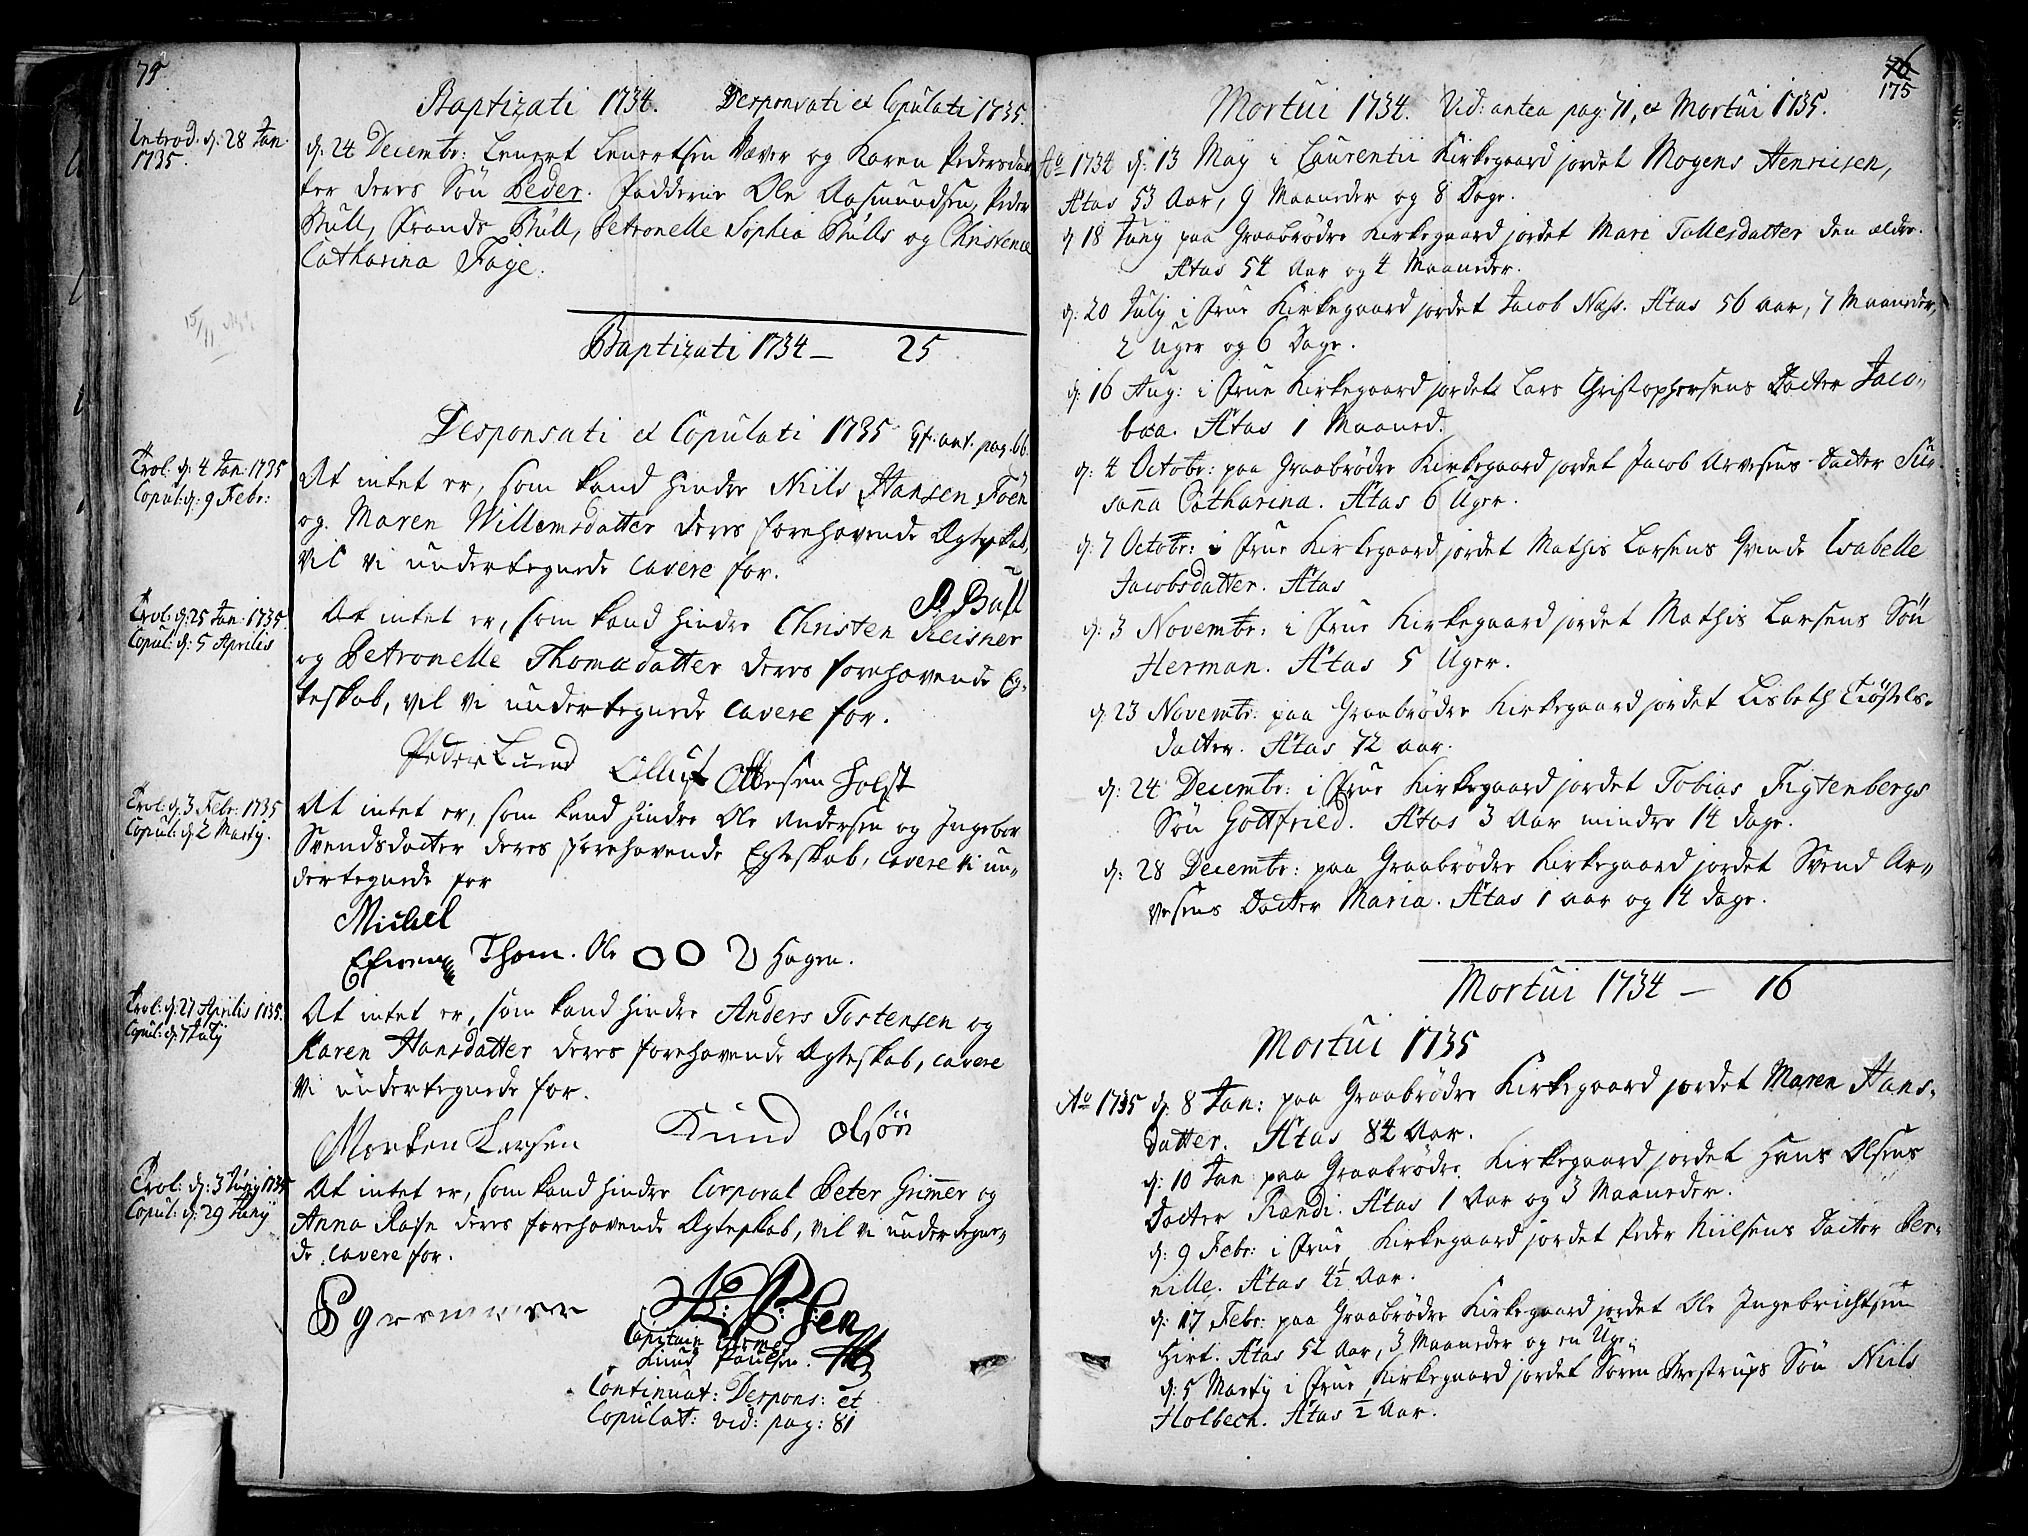 75
Baptizati 1734. Desponsati et Copulati 1735.
Introd. d: 28 Jan.
1735.
d: 24 Decembr: Lenert Lenertsen Væver og Karen Pedersdat
ter deres Sön Peder. Fadderne Ole Aasmundsen, Peder
Bull, Frands Bull, Petronelle Sophia Bulls og Christence
Catharina Foye.
Baptizati 1734 — 25
Desponsati et Copulati 1735 Cf. ant. pag. 66.
Trol: d: 4 Jan: 1735
Copul: d: 9 Febr:
At intet er, som kand hindre Niils Hansen Föen
og Maren Willemsdatter deres forehavende Ægteskab,
vil vi undertegnede cavere for.
P. Bull
Trol: d: 25 Jan: 1735.
Copul: d: 5 Aprilis
At intet er, som kand hindre Christen Reisner
og Petronelle Thomædatter deres forehavende Eg-
teskab, vil vi undertegnede cavere for.
Peder Lund Olluf Ottesen Holst
Trol: d: 3 Febr: 1735
Copul: d: 2 Martij.
At intet er, som kand hindre Ole Andersen og Ingebor
Svendsdatter deres forehavende Egteskab, cavere vi un-
dertegnede for
Michel
Thom. Ole Hagen.
Trol: d: 27 Aprilis 1735.
Copul: d: 7 Julij
At intet er, som kand hindre Anders Tostensen og
Karen Hansdatter deres forehavende Ægteskab, cavere
vi undertegnede for.
Morten Larsen Knud Olsön
Trol: d: 3 Junij 1735
Copul: d: 29 Junij
At intet er, som kand hindre Corporal Peter Grimer og
Anna Rasse deres forehavende Ægteskab, vil vi undertegne-
de cavere for.
Capitain Armes
Knud Poulsen.
Continuat: Despons: et
Copulat: vid: pag: 81
76
175
Mortui 1734. Vid: antea pag: 71, et Mortui 1735.
Ao 1734 d: 13 May i Laurentii Kirkegaard jordet Mogens Henricsen,
Ætas 53 Aar, 9 Maaneder og 8 Dage.
d 18 Juny paa Graabrödre Kirkegaard jordet Mari Tollesdatter den ældre.
Ætas 54 Aar og 4 Maaneder.
d: 20 July i Frue Kirkegaard jordet Jacob Næss. Ætas 56 aar, 7 Maaneder,
2 Uger og 6 Dage.
d: 16 Aug: i Frue Kirkegaard jordet Lars Christophersens Datter Jaco-
bæa. Ætas 1 Maaned.
d: 4 Octobr: paa Graabrödre Kirkegaard jordet Jacob Arvesens Datter Su-
sanna Catharina. Ætas 6 Uger.
d: 7 Octobr: i Frue Kirkegaard jordet Mathis Larsens Qvinde Isabelle
Jacobsdatter. Ætas
d: 3 Novembr: i Frue Kirkegaard jordet Mathis Larsens Sön
Herman. Ætas 5 Uger.
d: 23 Novembr: paa Graabrödre Kirkegaard jordet Lisbeth Kiöstels-
datter. Ætas 72 aar.
d: 24 Decembr: i Frue Kirkegaard jordet Tobias Figtenbergs
Sön Gottfried. Ætas 3 Aar mindre 14 dage.
d: 28 Decembr: paa Graabrödre Kirkegaard jordet Svend Ar-
vesens Datter Maria. Ætas 1 aar og 14 dage.
Mortui 1734 — 16
Mortui 1735
Ao 1735 d: 8 Jan: paa Graabrödre Kirkegaard jordet Maren Hans-
datter. Ætas 84 Aar.
d: 10 Jan paa Graabrödre Kirkegaard jordet Hans Olsens
Datter Randi. Ætas 1 Aar og 3 Maaneder.
d: 9 Febr: i Frue Kirkegaard jordet Peder Niilsens Datter Per-
nille. Ætas 4½ Aar.
d: 17 Febr: paa Graabrödre Kirkegaard jordet Ole Ingebrichtsen
Hirt. Ætas 52 Aar, 3 Maaneder og en Uge.
d: 5 Martij i Frue Kirkegaard jordet Sören Brestrups Sön Niils
Holbech. Ætas ½ Aar.